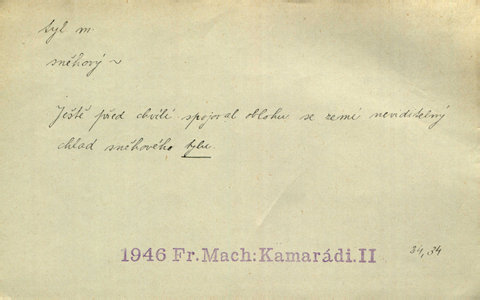 tyl m.
sněhový ~
Ještě před chvílí spojoval oblohu se zemí neviditelný
chlad sněhového tylu.
1946 Fr.Mach:Kamarádi.II
34,34